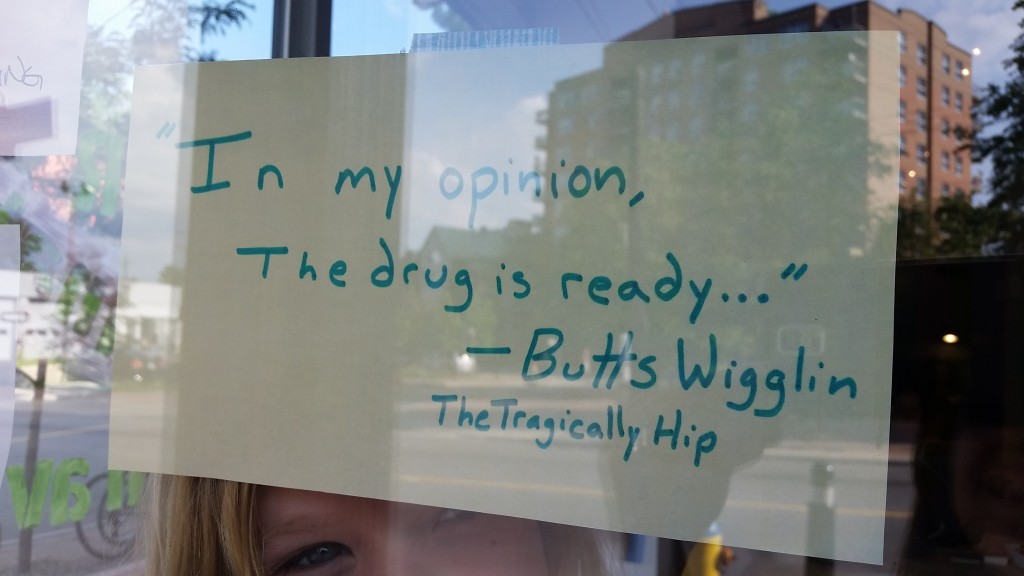 "In my opinion,
The drug is ready..."
- Butts Wigglin
The Tragically Hip